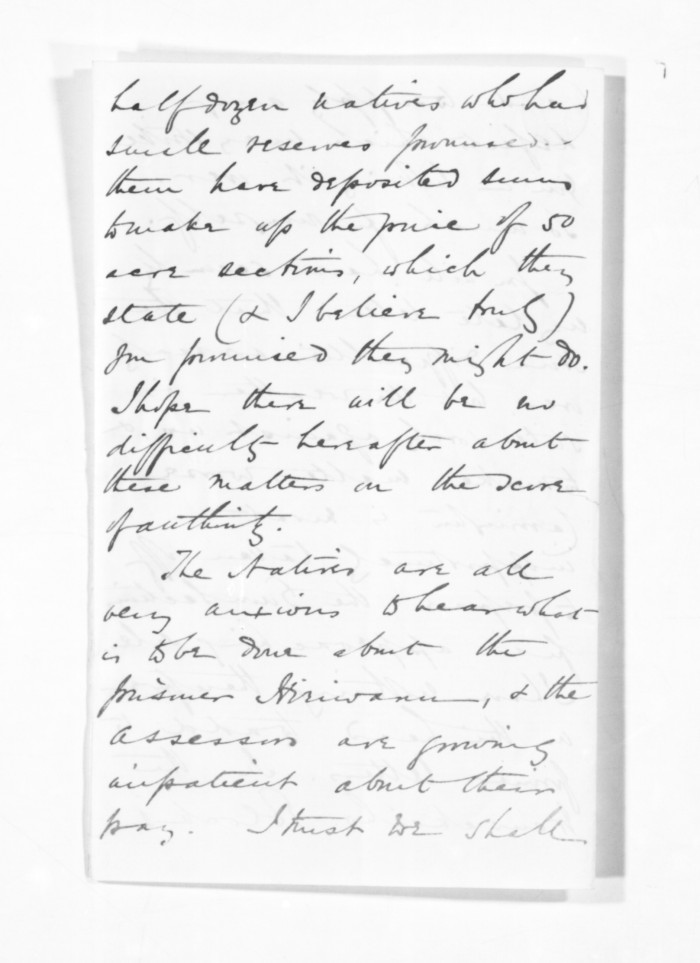 half dozen natives who had
small reserves promised
them have deposited sums
to make up the price of 50
acre sections, which they
state (& I believe truly)
you promised they might do.
I hope there will be no
difficulty hereafter about
these matters on the score
of authority.
The Natives are all
very anxious to hear what
is to be done about the
prisoner Hiriwanu, & the
assessors are growing
impatient about their
pay. I trust we shall